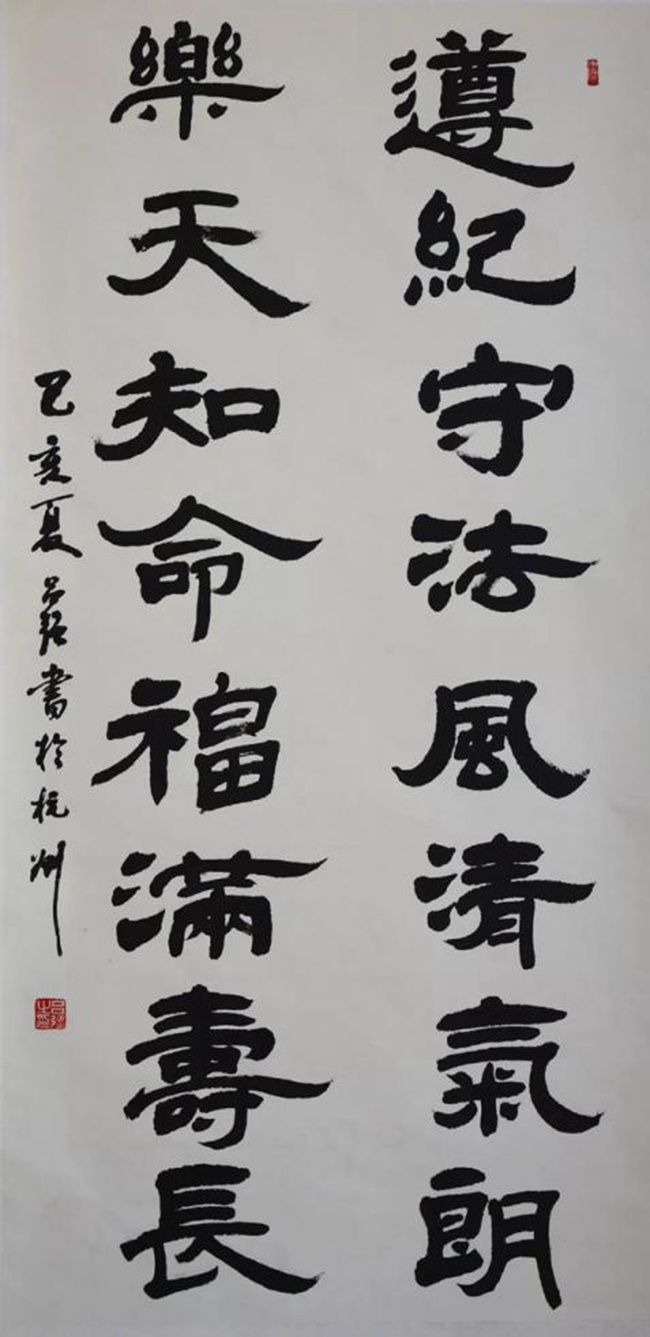 遵紀守法風清氣朗
樂天知命福滿壽長
己亥夏呂弢書於杭州